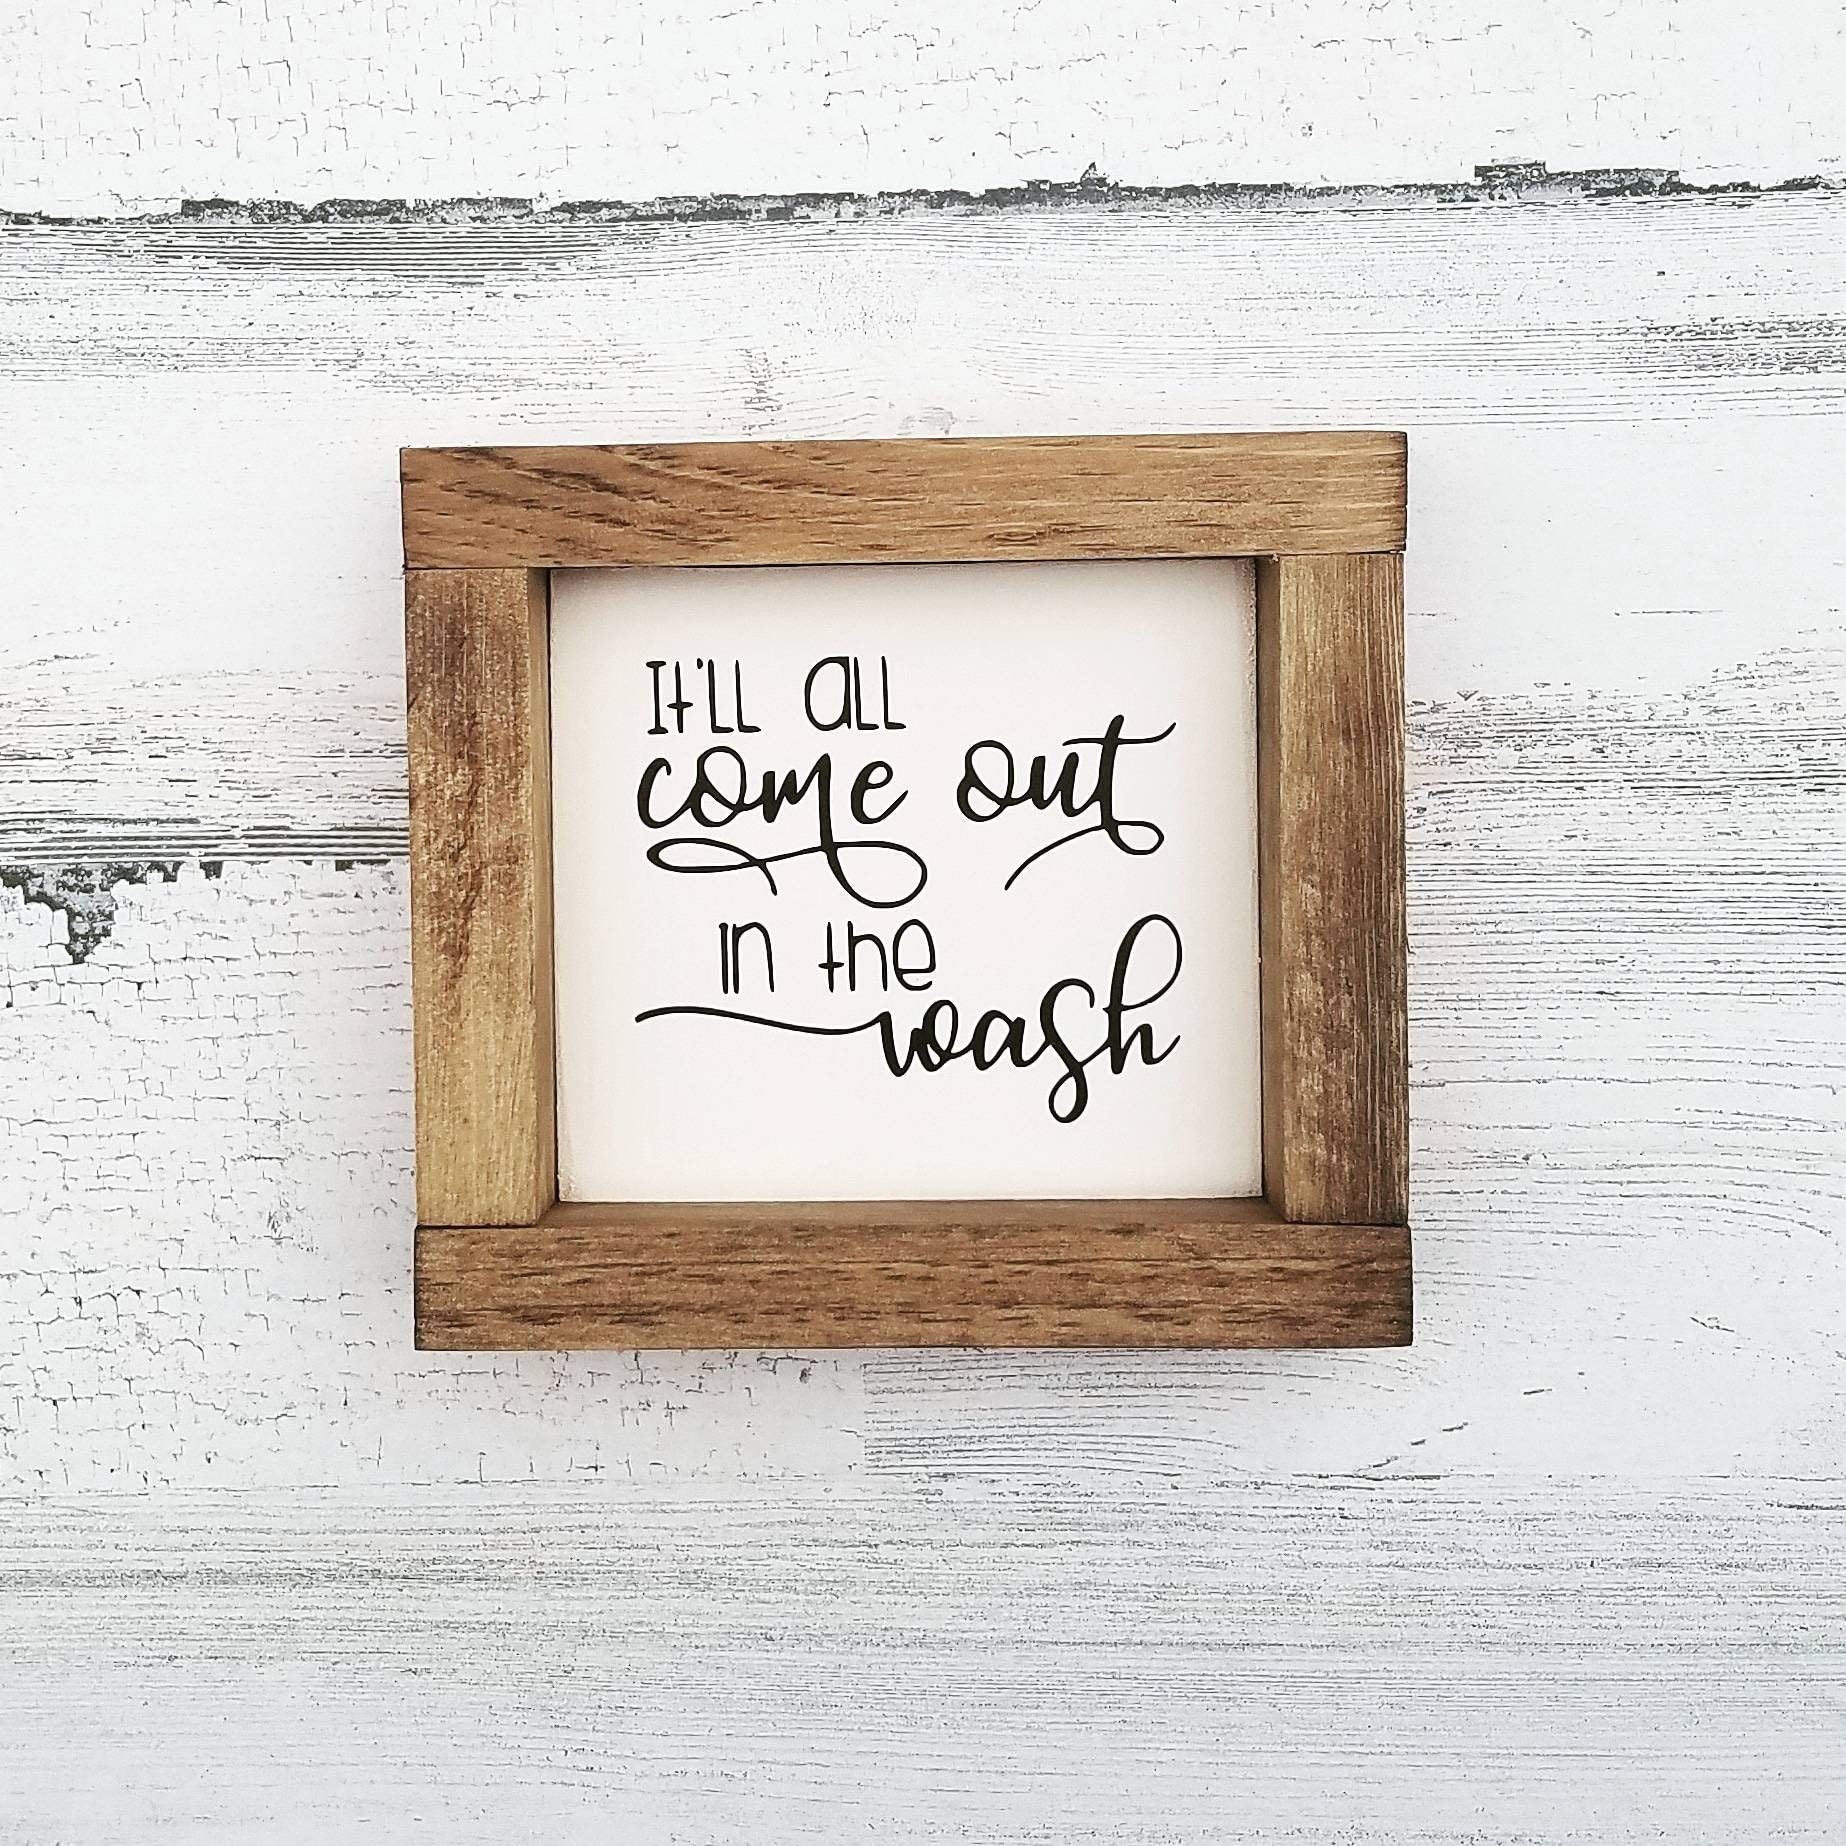 It'll all
come out
in the
wash